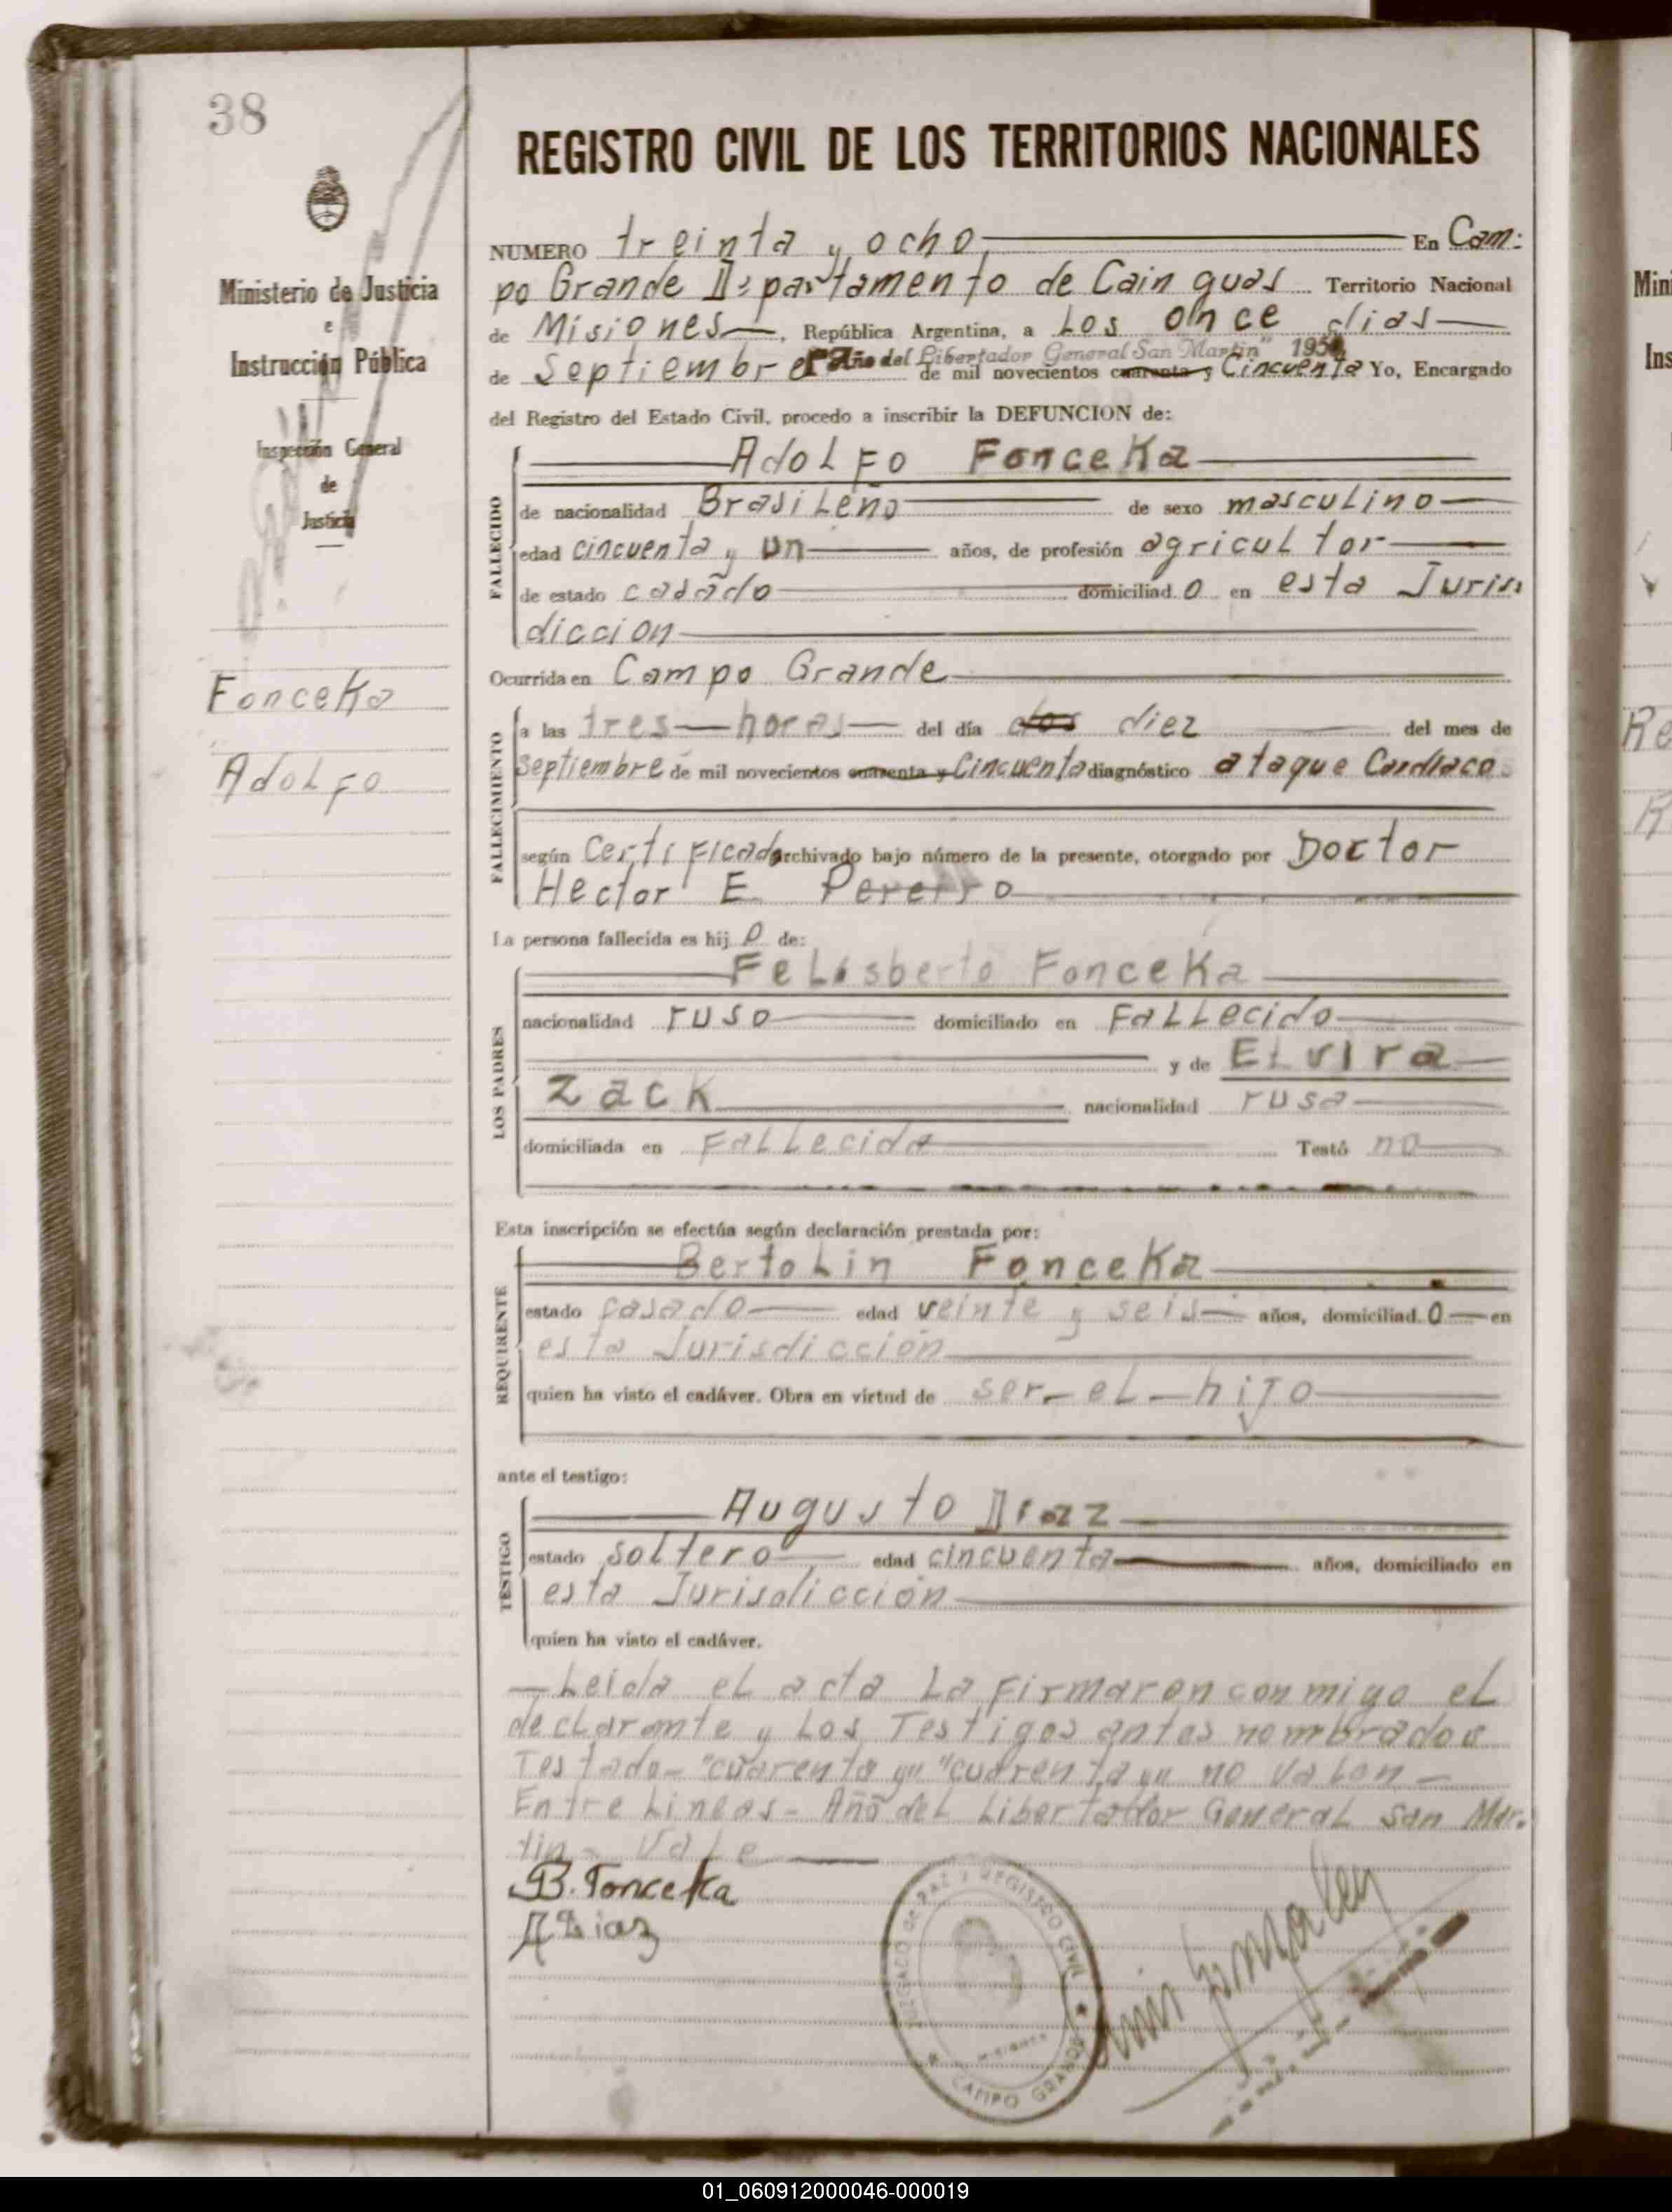 38
REGISTRO CIVIL DE LOS TERRITORIOS NACIONALES
Ministerio de Justicia
e
Instrucción Pública
Inspección General
de
Justicia
Fonceka
Adolfo
NUMERO treinta y ocho En Cam-
po Grande Departamento de Cainguas Territorio Nacional
de Misiones, República Argentina, a Los once dias
"Año del Libertador General San Martin" 1950
de Septiembre de mil novecientos cuarenta y Cincuenta Yo, Encargado
del Registro del Estado Civil, procedo a inscribir la DEFUNCION de:
FALLECIDO
Adolfo Fonceka
de nacionalidad Brasileño de sexo masculino
edad cincuenta y un años, de profesión agricultor
de estado casado domiciliado en esta Juris
diccion
Ocurrida en Campo Grande
FALLECIMIENTO
a las tres horas del día dos diez del mes de
Septiembre de mil novecientos cuarenta y Cincuenta diagnóstico ataque Cardiaco
según Certificado archivado bajo número de la presente, otorgado por Doctor
Hector E.
La persona fallecida es hijo de:
LOS PADRES
Felisberto Fonceka
nacionalidad ruso domiciliado en Fallecido
y de Elvira
Zack nacionalidad rusa
domiciliada en Fallecida Testó no
Esta inscripción se efectúa según declaración prestada por:
REQUIRENTE
Bertolin Fonceka
estado casado edad veinte y seis años, domiciliado en
esta Jurisdicción
quien ha visto el cadáver. Obra en virtud de ser el hijo
ante el testigo:
TESTIGO
Augusto Diaz
estado soltero edad cincuenta años, domiciliado en
esta Jurisdicción
quien ha visto el cadáver.
Leida el acta La Firmaron conmigo el
declarante y Los Testigos antes nombrados
Testado- "cuarenta y" "cuarenta y" no valen-
Entre Lineas- Año del Libertador General San Mar-
tin- Vale
B. Fonceka
A Diaz
JUZGADO DE PAZ Y REGISTRO CIVIL
MISIONES
CAMPO GRANDE
Gonzalez
Min
Ins
01_060912000046-000019